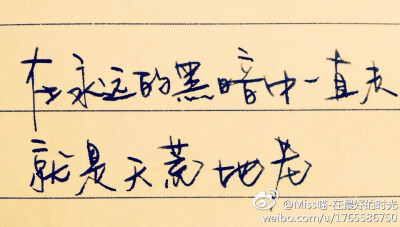 在永远的黑暗中一直走
就是天荒地老
@Miss喵-在最好的时光
weibo.com/u/1765586750